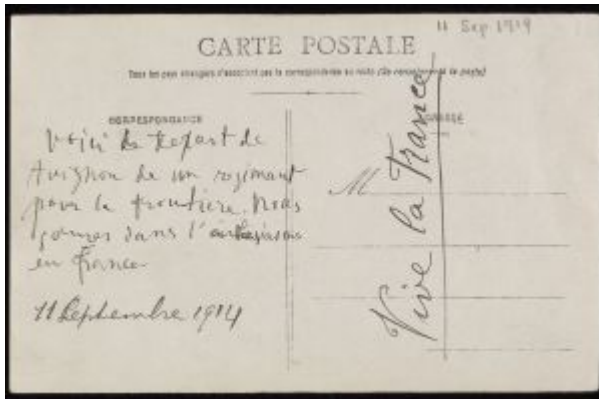 11 Sep 1919
CARTE POSTALE
Tous les pays étrangers n'acceptent pas la correspondance au recto (Se renseigner à la poste)
CORRESPONDANCE
Voici le depart de
Avignon de un regimant
pour la frontiere. Nous
sommes dans l'
en France
11 Septembre 1914
M
Vive la France